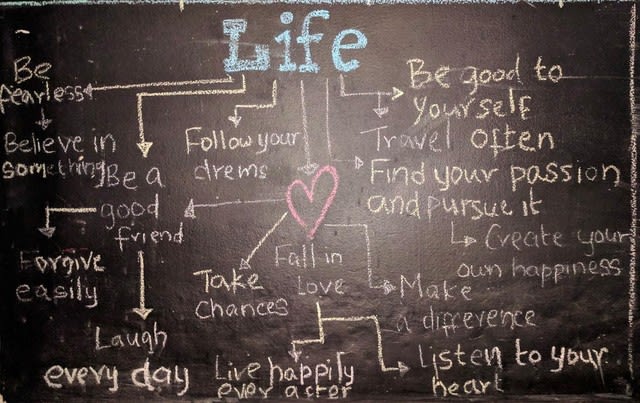 Life
Be
fearless
Believe in
something
Be a
good
friend
Forgive
easily
Laugh
every day
Follow your
drems
Fall in
Love
Take
chances
Live happily
ever after
Be good to
yourself
Travel often
Find your passion
and pursue it
Create your
own happiness
Make
a difference
Listen to your
heart